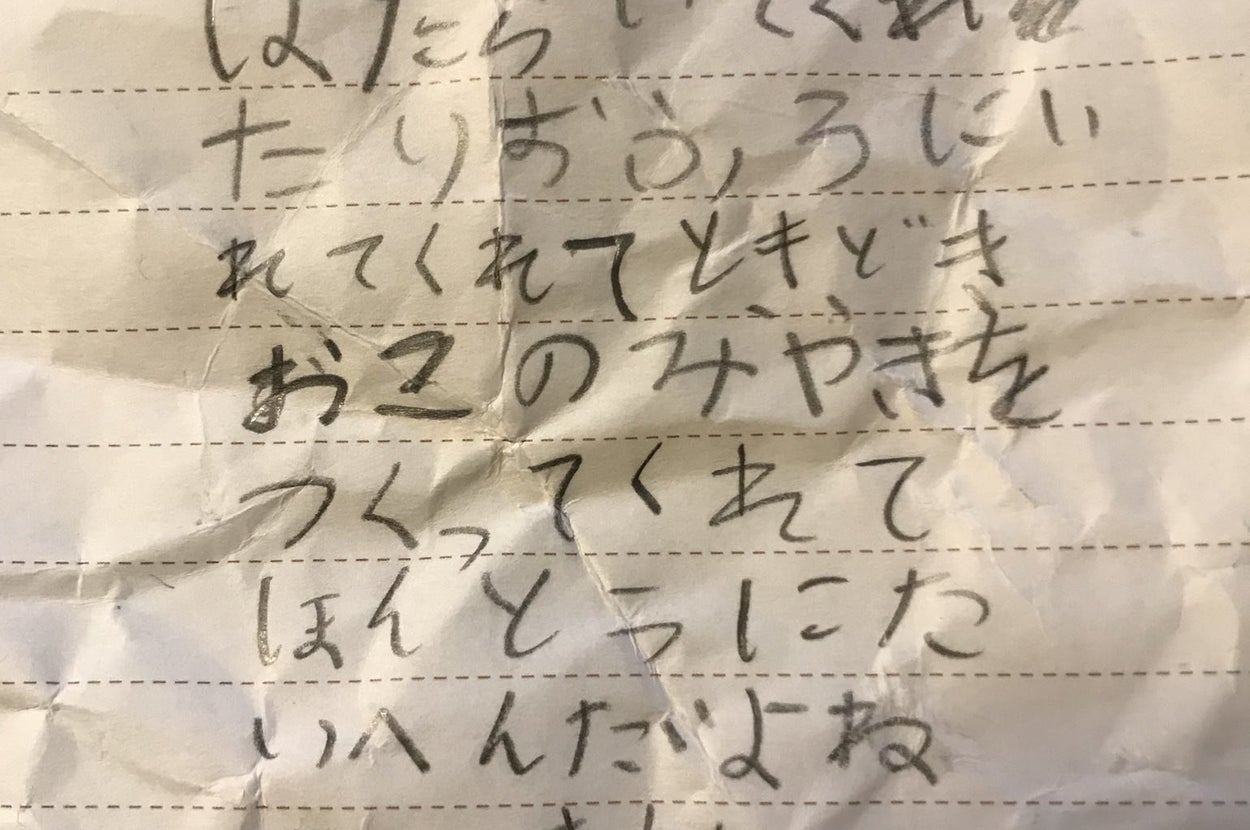 はたらいてくれ
たりおふろにい
れてくれてときどき
おこのみやきを
つくってくれて
ほんとうにた
いへんだよね